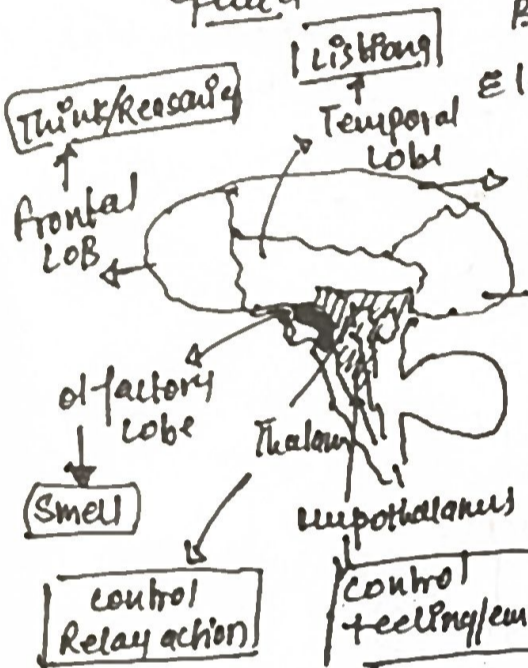 Listiong
Think/Reasonig
Temporal
Lobe
frontal
LOB
olfactory
Lobe
Smell
Thalam
Hupothalamus
control
Relay action
control
feeling/em